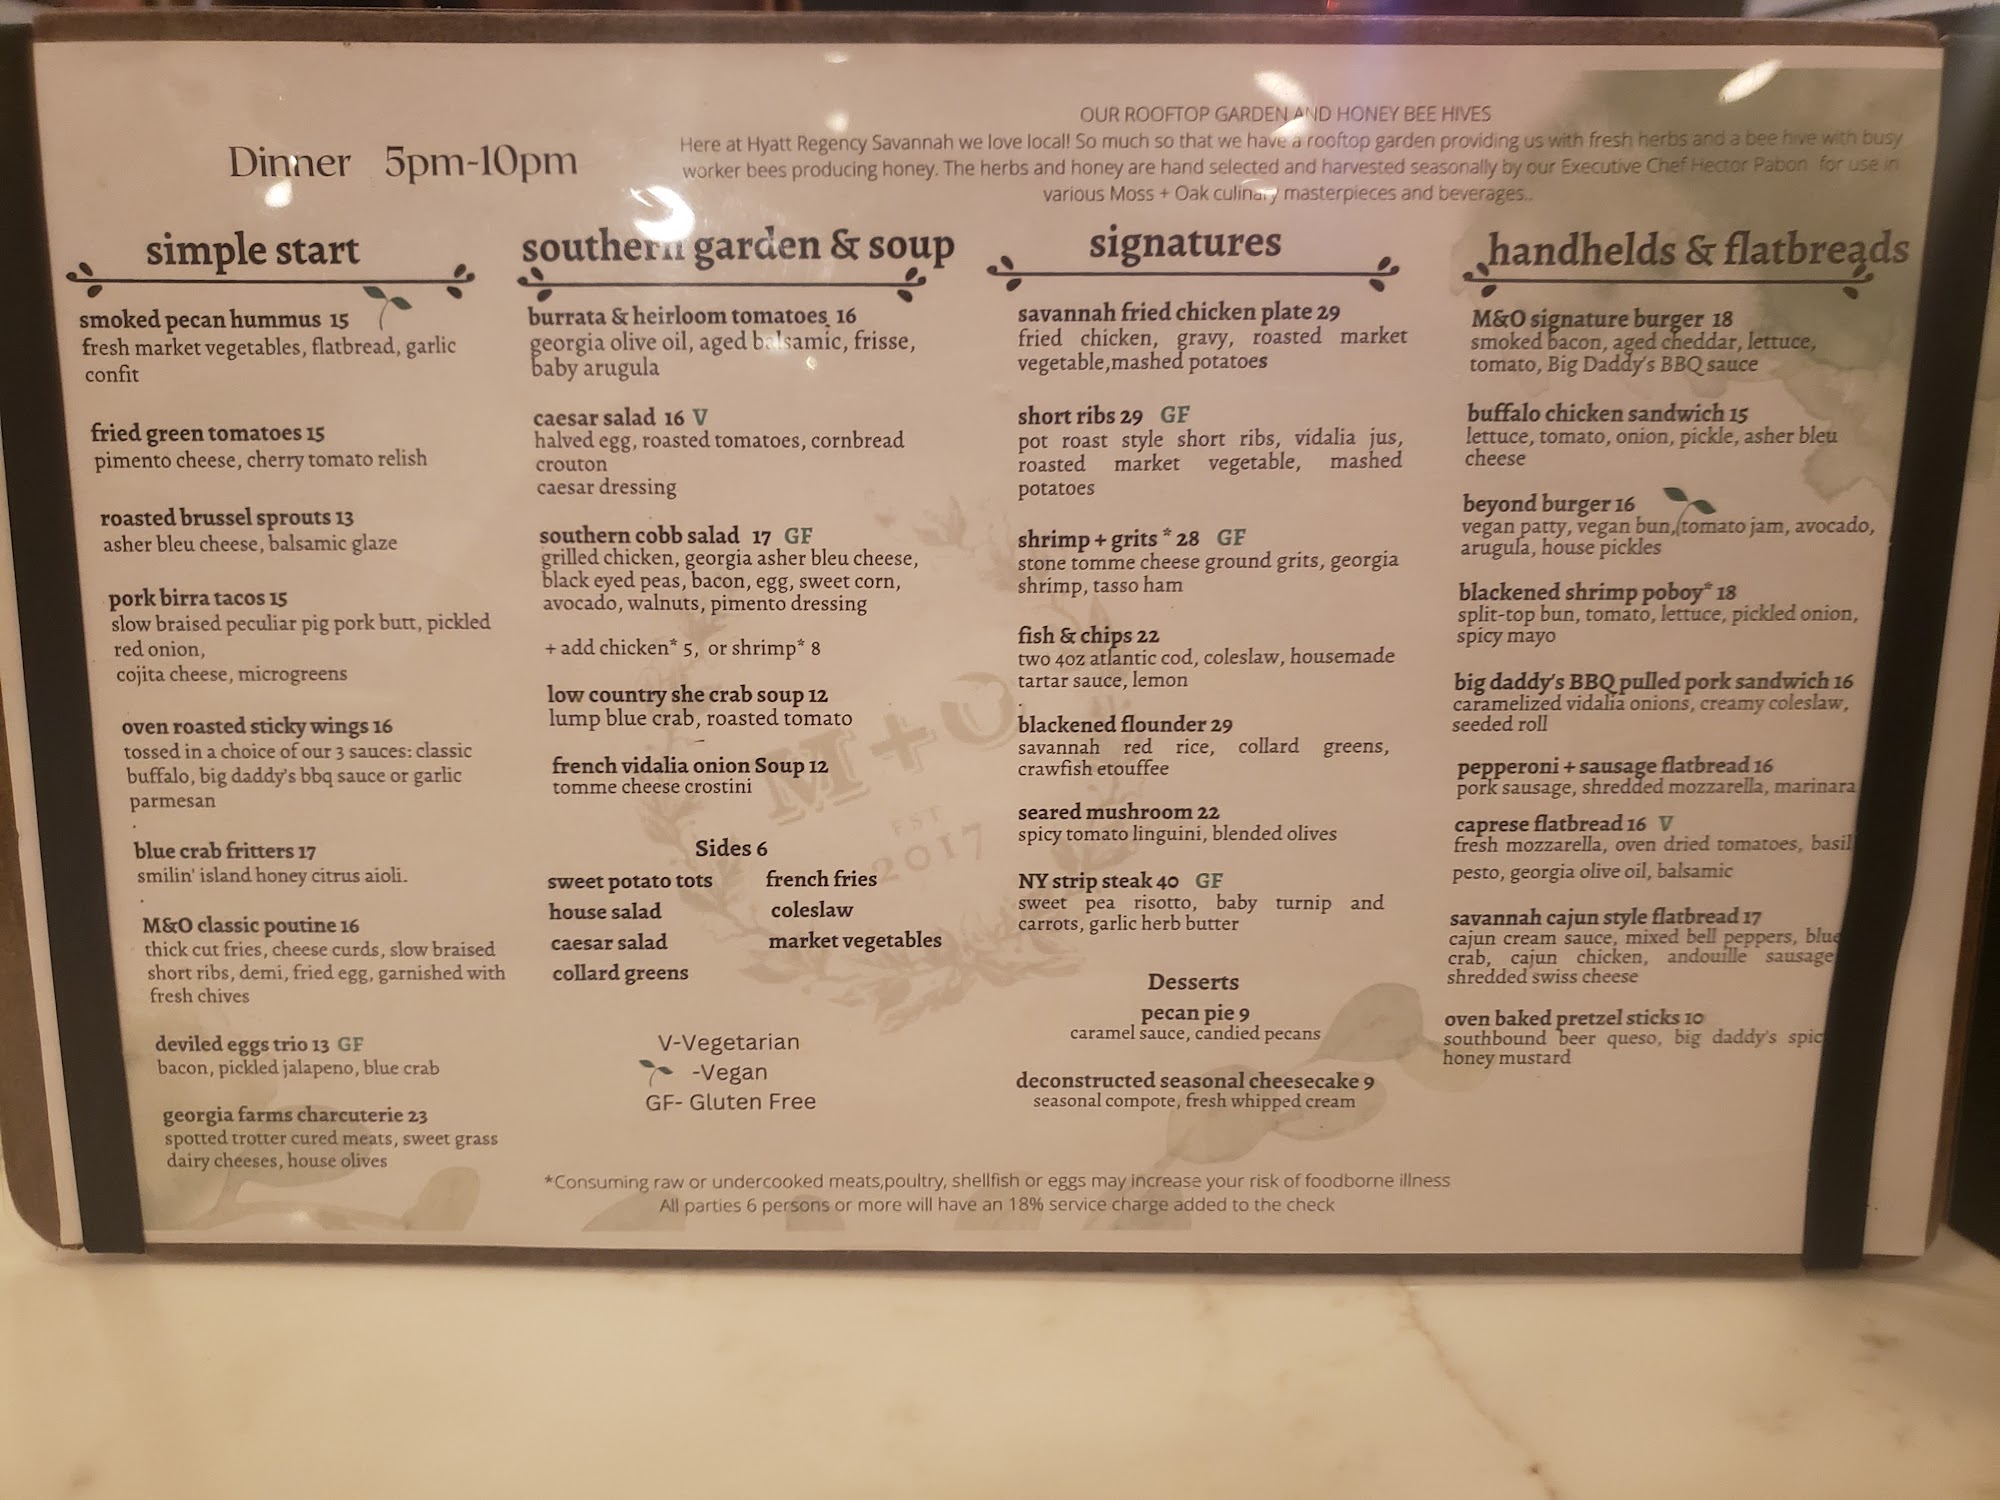 Dinner 5pm-10pm
OUR ROOFTOP GARDEN AND HONEY BEE HIVES
Here at Hyatt Regency Savannah we love local! So much so that we have a rooftop garden providing us with fresh herbs and a bee hive with busy
worker bees producing honey. The herbs and honey are hand selected and harvested seasonally by our Executive Chef Hector Pabon for use in
various Moss + Oak culinary masterpieces and beverages..
simple start
smoked pecan hummus 15
fresh market vegetables, flatbread, garlic
confit
fried green tomatoes 15
pimento cheese, cherry tomato relish
roasted brussel sprouts 13
asher bleu cheese, balsamic glaze
pork birra tacos 15
slow braised peculiar pig pork butt, pickled
red onion,
cojita cheese, microgreens
oven roasted sticky wings 16
tossed in a choice of our 3 sauces: classic
buffalo, big daddy's bbq sauce or garlic
parmesan
.
blue crab fritters 17
smilin' island honey citrus aioli.
.
M&O classic poutine 16
thick cut fries, cheese curds, slow braised
short ribs, demi, fried egg, garnished with
fresh chives
deviled eggs trio 13 GF
bacon, pickled jalapeno, blue crab
georgia farms charcuterie 23
spotted trotter cured meats, sweet grass
dairy cheeses, house olives
southern garden & soup
burrata & heirloom tomatoes, 16
georgia olive oil, aged balsamic, frisse,
baby arugula
caesar salad 16 V
halved egg, roasted tomatoes, cornbread
crouton
caesar dressing
southern cobb salad 17 GF
grilled chicken, georgia asher bleu cheese,
black eyed peas, bacon, egg, sweet corn,
avocado, walnuts, pimento dressing
+ add chicken* 5, or shrimp* 8
low country she crab soup 12
lump blue crab, roasted tomato
french vidalia onion Soup 12
tomme cheese crostini
Sides 6
sweet potato tots french fries
house salad coleslaw
caesar salad market vegetables
collard greens
V-Vegetarian
-Vegan
GF- Gluten Free
M+O
EST
2017
signatures
savannah fried chicken plate 29
fried chicken, gravy, roasted market
vegetable,mashed potatoes
short ribs 29 GF
pot roast style short ribs, vidalia jus,
roasted market vegetable, mashed
potatoes
shrimp + grits * 28 GF
stone tomme cheese ground grits, georgia
shrimp, tasso ham
fish & chips 22
two 4oz atlantic cod, coleslaw, housemade
tartar sauce, lemon
.
blackened flounder 29
savannah red rice, collard greens,
crawfish etouffee
seared mushroom 22
spicy tomato linguini, blended olives
NY strip steak 40 GF
sweet pea risotto, baby turnip and
carrots, garlic herb butter
Desserts
pecan pie 9
caramel sauce, candied pecans
deconstructed seasonal cheesecake 9
seasonal compote, fresh whipped cream
handhelds & flatbreads
M&O signature burger 18
smoked bacon, aged cheddar, lettuce,
tomato, Big Daddy's BBQ sauce
buffalo chicken sandwich 15
lettuce, tomato, onion, pickle, asher bleu
cheese
beyond burger 16
vegan patty, vegan bun, tomato jam, avocado,
arugula, house pickles
blackened shrimp poboy* 18
split-top bun, tomato, lettuce, pickled onion,
spicy mayo
big daddy's BBQ pulled pork sandwich 16
caramelized vidalia onions, creamy coleslaw,
seeded roll
pepperoni + sausage flatbread 16
pork sausage, shredded mozzarella, marinara
caprese flatbread 16 V
fresh mozzarella, oven dried tomatoes, basil
pesto, georgia olive oil, balsamic
savannah cajun style flatbread 17
cajun cream sauce, mixed bell peppers, blue
crab, cajun chicken, andouille sausage
shredded swiss cheese
oven baked pretzel sticks 10
southbound beer queso, big daddy's spic
honey mustard
*Consuming raw or undercooked meats,poultry, shellfish or eggs may increase your risk of foodborne illness
All parties 6 persons or more will have an 18% service charge added to the check